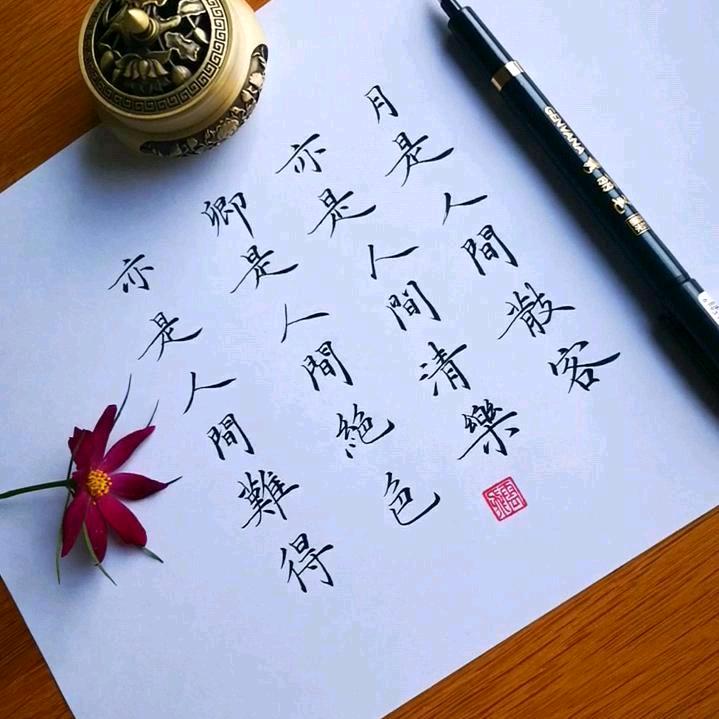 月是人間散客
亦是人間清樂
卿是人間絕色
亦是人間難得
GENKANA